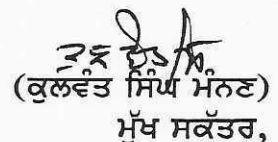 (ਕੁਲਵੰਤ ਸਿੰਘ ਮੰਨਣ)
ਮੁੱਖ ਸਕੱਤਰ,